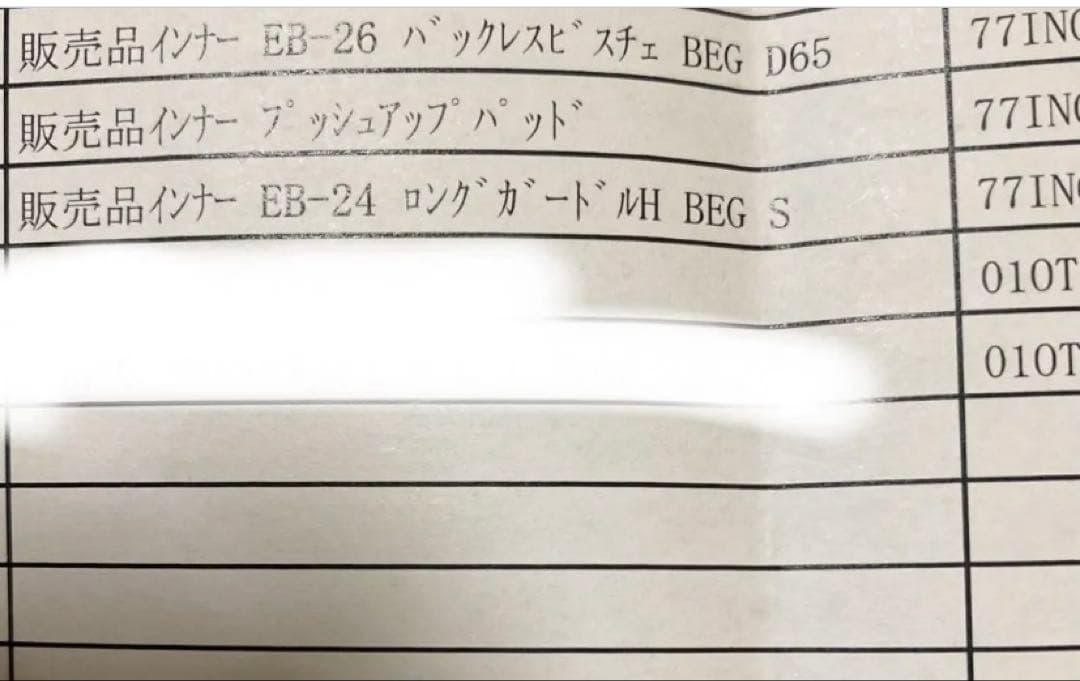 販売品インナー EB-26 バックレスビスチェ BEG D65 77IN
販売品インナー プッシュアップパッド 77IN
販売品インナー EB-24 ロングガードルH BEG S 77IN
010T
010T